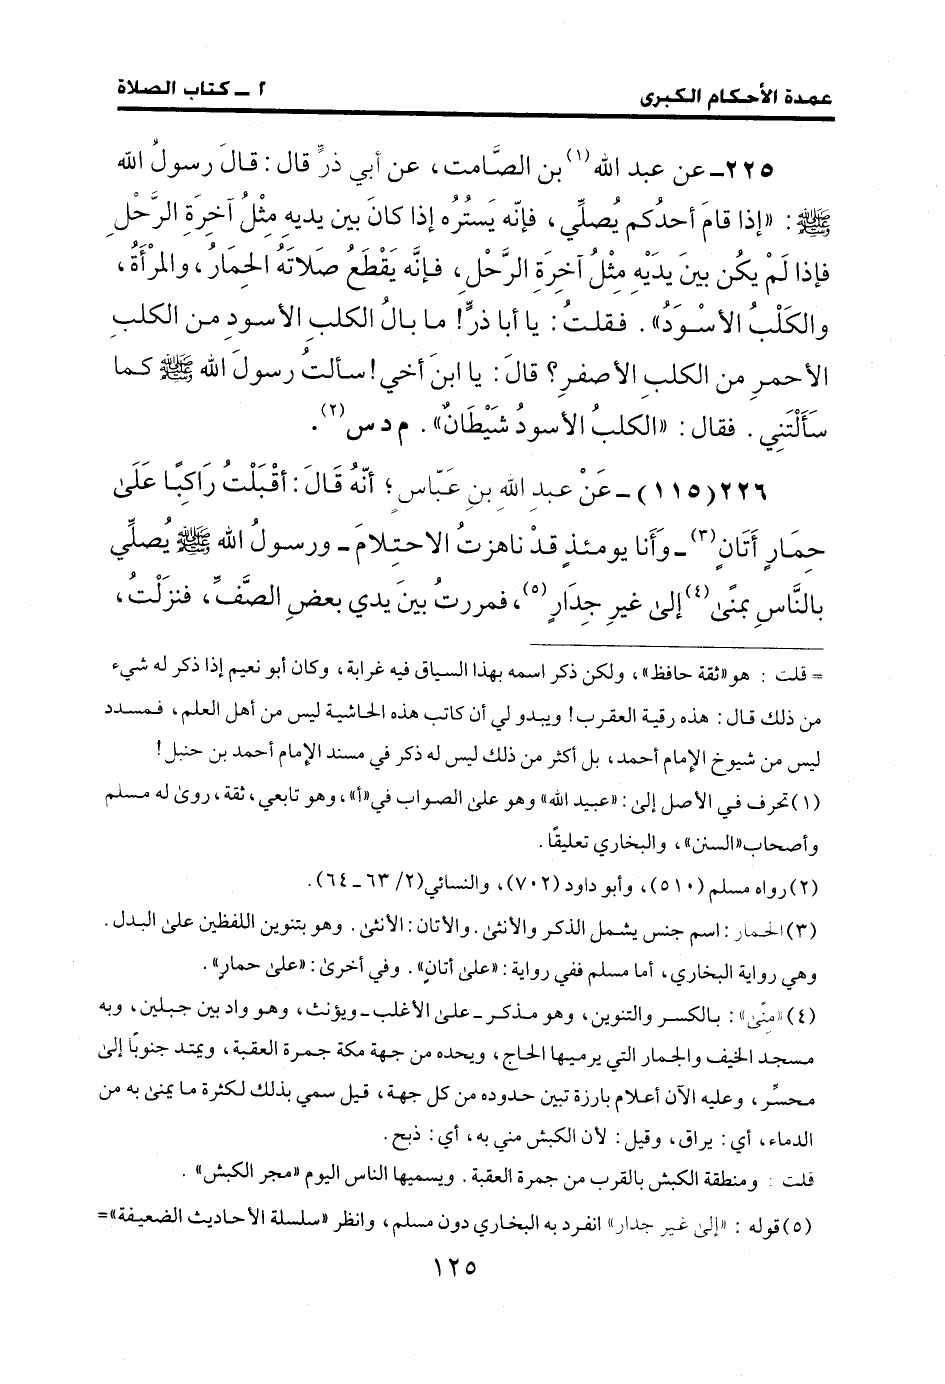 عمدة الأحكام الكبرى
٢ ـ كتاب الصلاة
٢٢٥ـ عن عبد الله(١) بن الصَّامت، عن أبي ذرٍّ قال: قالَ رسولُ الله
ﷺ: «إذا قامَ أحدُكم يُصلِّي، فإنّه يَستُره إذا كانَ بين يديهِ مِثْلُ آخرَةِ الرَّحْلِ
فإذا لَمْ يكُن بينَ يدَيْهِ مثلُ آخرَةِ الرَّحْلِ، فـإنَّه يَقْطَعُ صلاتَه الحِمارُ، والمرْأَةُ،
والكَلْبُ الأسْـوَدُ». فـقلتُ: يا أبا ذرٍّ! ما بالُ الكلبِ الأسودِ مـن الكلبِ
الأحمرِ من الكلبِ الأصفرِ؟ قالَ: يا ابنَ أخي! سألتُ رسولَ الله ﷺ كـما
سَأَلْتَني. فقال: «الكلبُ الأسودُ شَيْطَانٌ». م د س(٢).
٢٢٦(١١٥)ـ عَنْ عبدِ اللهِ بنِ عبَّاسٍ؛ أنّهُ قَالَ: أقْبَلْتُ رَاكبًا عَلَىٰ
حِمَارٍ أَتَانٍ(٣)ـ وأَنا يومئذٍ قدْ ناهزتُ الاحتِلامَ ـ ورسولُ الله ﷺ يُصلِّي
بالنَّاسِ بمنًى(٤) إلىٰ غيرِ جِدَارٍ(٥)، فمررتُ بينَ يدي بعضِ الصَّفِّ، فنزلْتُ،
= قلت: هو «ثقة حافظ»، ولكن ذكر اسمه بهذا السياق فيه غرابة، وكان أبو نعيم إذا ذكر له شيء
من ذلك قال: هذه رقية العقرب! ويبدو لي أن كاتب هذه الحاشية ليس من أهل العلم، فـمسدد
ليس من شيوخ الإمام أحمد، بل أكثر من ذلك ليس له ذكر في مسند الإمام أحمد بن حنبل!
(١) تحرف فـي الأصل إلى: «عبيد الله» وهو علىٰ الصواب في «أ»، وهو تابعي، ثقة، روىٰ له مـسلم
وأصحاب «السنن»، والبخاري تعليقًا.
(٢) رواه مسلم (٥١٠)، وأبو داود (٧٠٢)، والنسائي (٢/ ٦٣ ـ ٦٤).
(٣) الحمار: اسم جنس يشمل الذكر والأنثىٰ. والأتان: الأنثىٰ. وهو بتنوين اللفظين علىٰ البدل.
وهي رواية البخاري، أما مسلم ففي رواية: «علىٰ أتانٍ». وفي أخرىٰ: «علىٰ حمارٍ».
(٤) «مِنًى»: بـالكسر والتنوين، وهو مـذكـر ـ علىٰ الأغلب ـ ويؤنث، وهـو واد بين جبلين، وبه
مسجد الخيف والجمار التي يرميها الحاج، ويحده من جهة مكة جمرة العقبة، ويمتد جنوبًا إلىٰ
محسِّر، وعليه الآن أعلام بارزة تبين حدوده من كل جهة، قيل سمي بذلك لكثرة ما يمنىٰ به من
الدماء، أي: يراق، وقيل: لأن الكبش مني به، أي: ذبح.
قلت: ومنطقة الكبش بالقرب من جمرة العقبة. ويسميها الناس اليوم «مجر الكبش».
(٥) قوله: «إلىٰ غيـر جدار» انفـرد به البخاري دون مسلم، وانظر «سلسلة الأحاديث الضعيفة»=
١٢٥